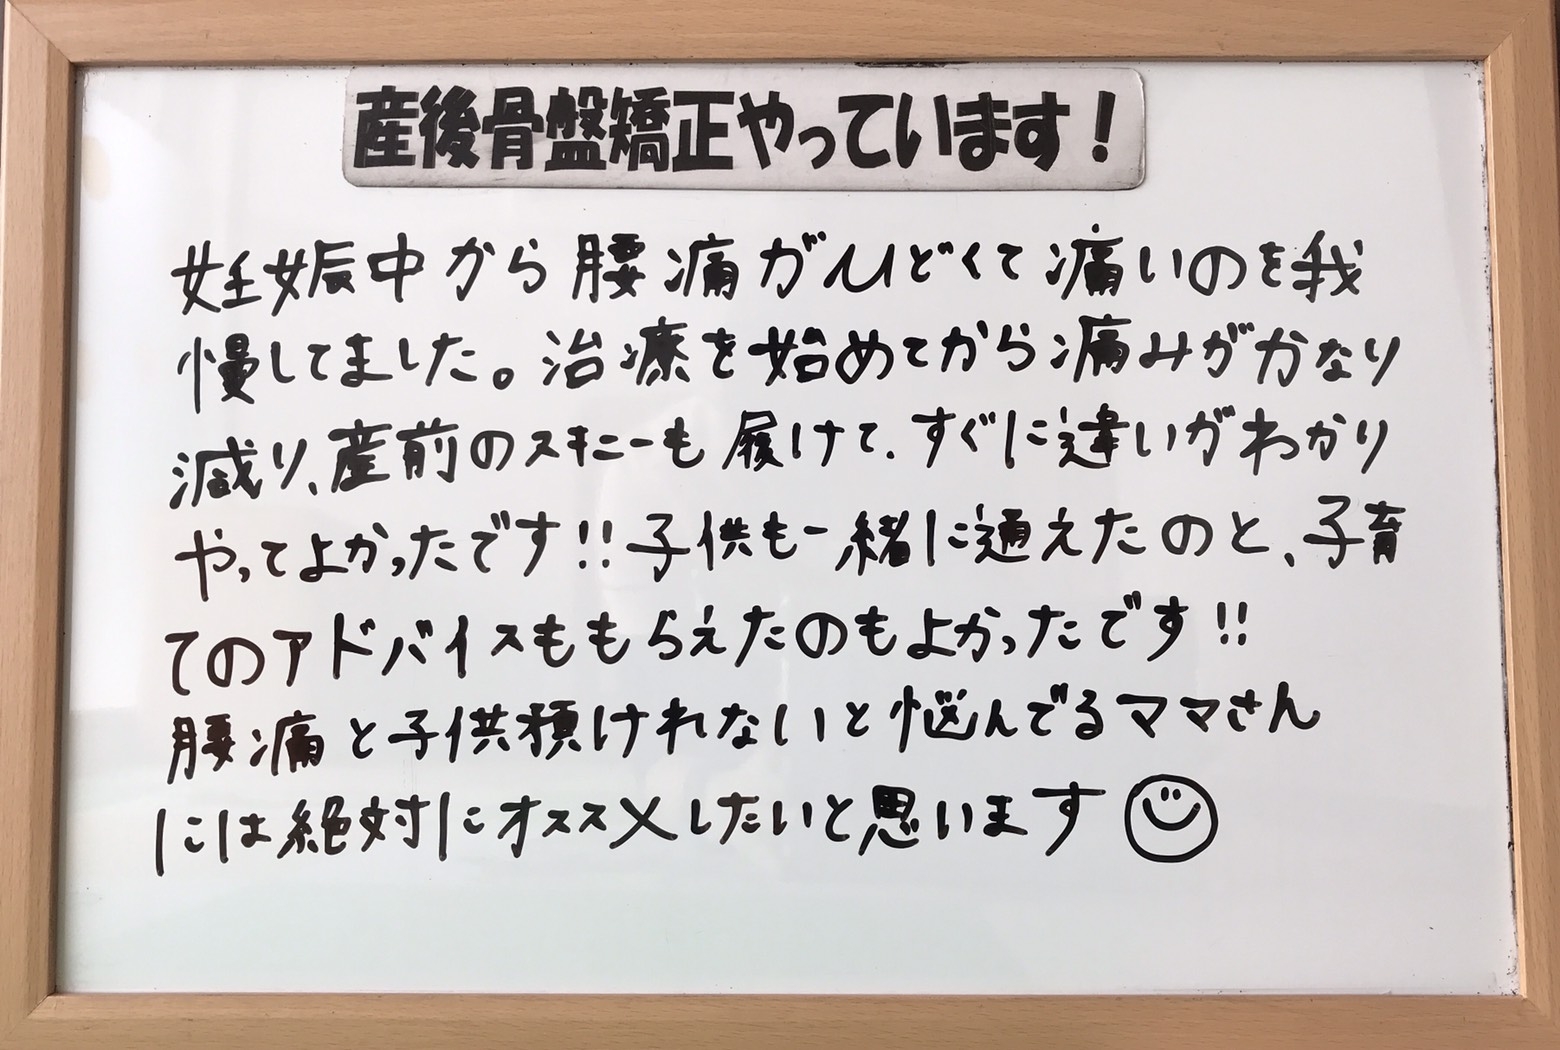 産後骨盤矯正やっています！
妊娠中から腰痛がひどくて痛いのを我
慢してました。治療を始めてから痛みがかなり
減り、産前のスキニーも履けて、すぐに違いがわかり
やってよかったです!!子供も一緒に通えたのと、子育
てのアドバイスももらえたのもよかったです!!
腰痛と子供預けれないと悩んでるママさん
には絶対にオススメしたいと思います